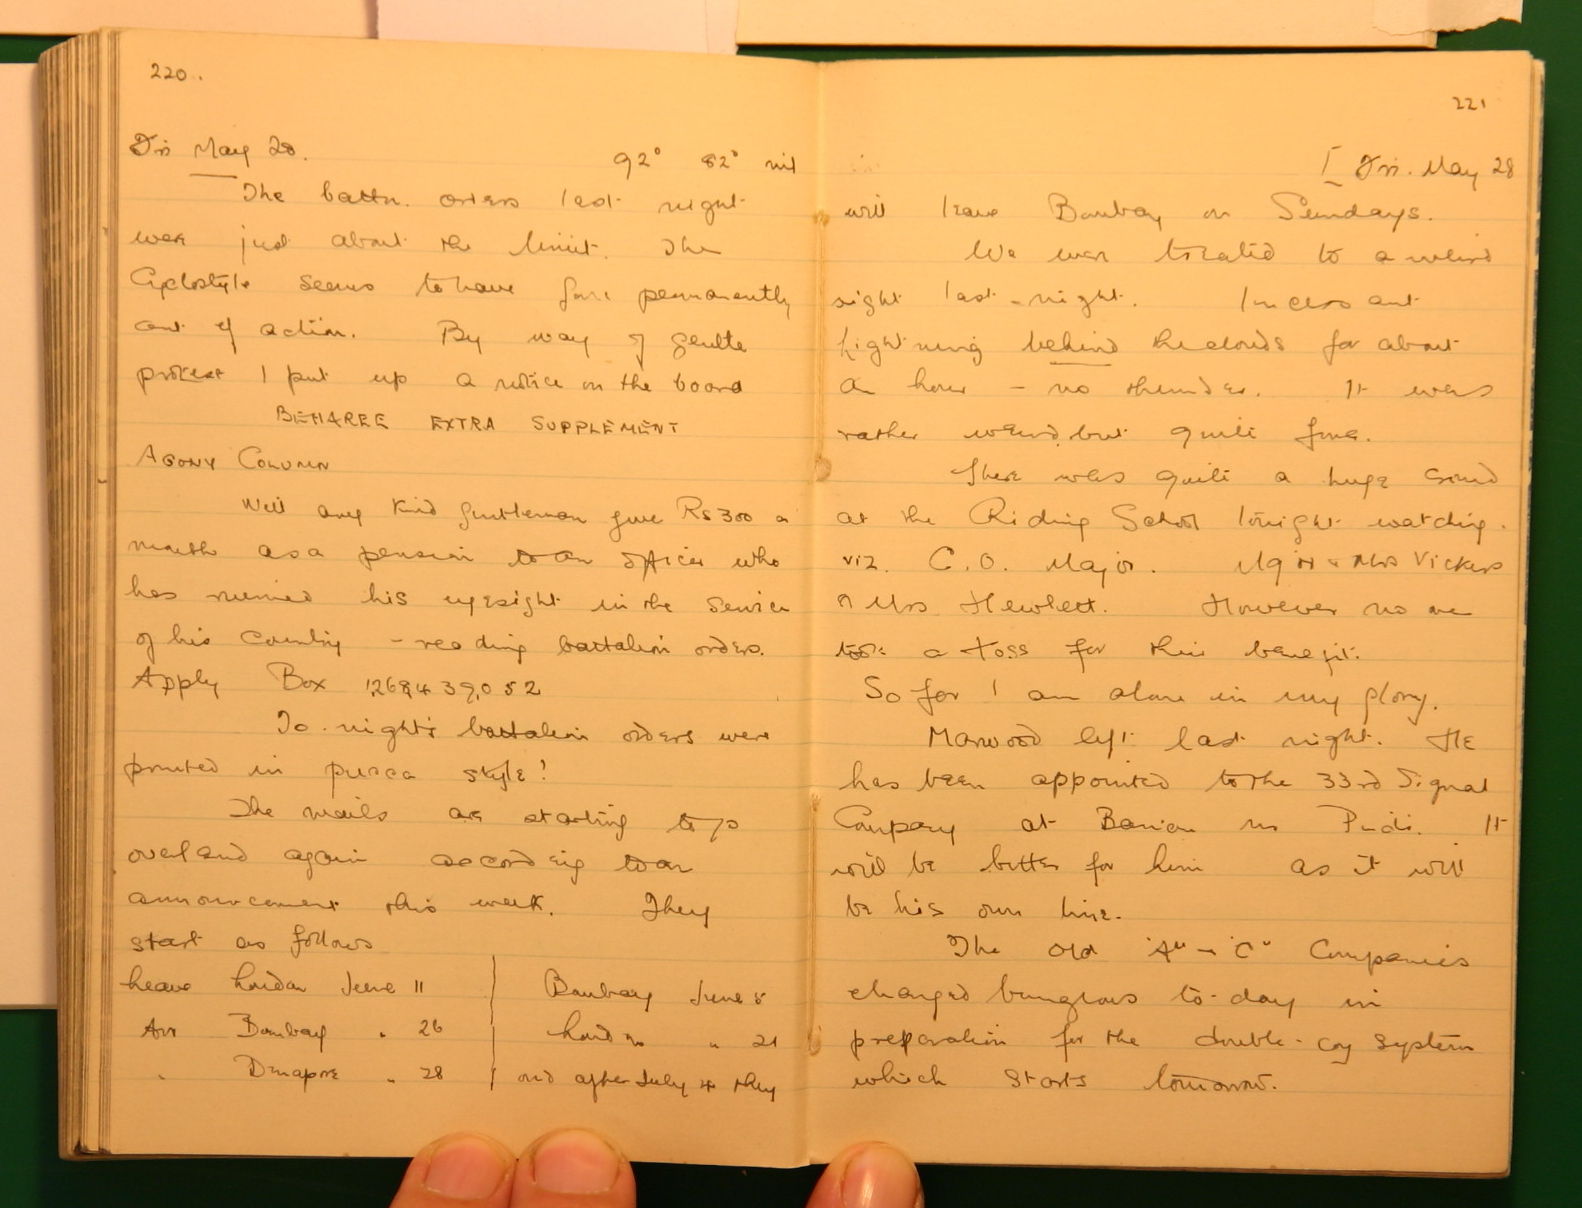 220.
Fri May 28. 92° 82° nil
The battn. orders last night
were just about the limit. The
Cyclostyle seems to have gone permanently
out of action. By way of gentle
protest I put up a notice on the board
BEHAREE EXTRA SUPPLEMENT
AGONY COLUMN
Will any kind gentleman give Rs 300 a
month as a pension to an officer who
has ruined his eyesight in the service
of his country - reading battalion orders.
Apply Box 1,268,439,052
To-night's battalion orders were
printed in pucca style!
The mails are starting to go
overland again according to an
announcement this week. They
start as follows
Leave London June 11 | Bombay June 5
Arr Bombay " 26 | London " 21
" Dinapore " 28 | and after July 4 they
221
Fri. May 28
will leave Bombay on Sundays.
We were treated to a weird
sight last-night. Incessant
lightning behind the clouds for about
an hour - no thunder. It was
rather weird but quite fine.
There was quite a huge crowd
at the Riding School tonight watching.
viz. C.O. Major. Mr & Mrs Vickers
& Mrs Hewlett. However no one
took a toss for their benefit.
So far I am alone in my glory.
Marwood left last night. He
has been appointed to the 33rd Signal
Company at Pindi. It
will be better for him as it will
be his own line.
The old "A" - "C" Companies
changed bungalows to-day in
preparation for the double-coy system
which starts tomorrow.